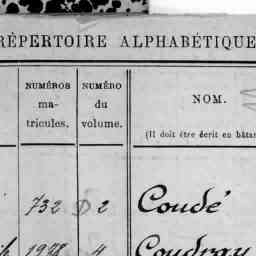 RÉPERTOIRE ALPHABÉTIQUE
NUMÉROS ma- tricules.
NUMÉRO du volume.
NOM.
(Il doit être écrit en bâtar
732 D 2 Coudé
1978 4 Coudray